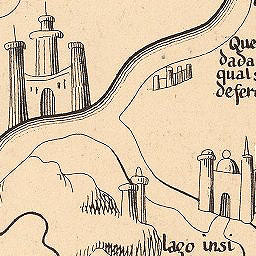 Que
dada
qual s
defer
lago insi